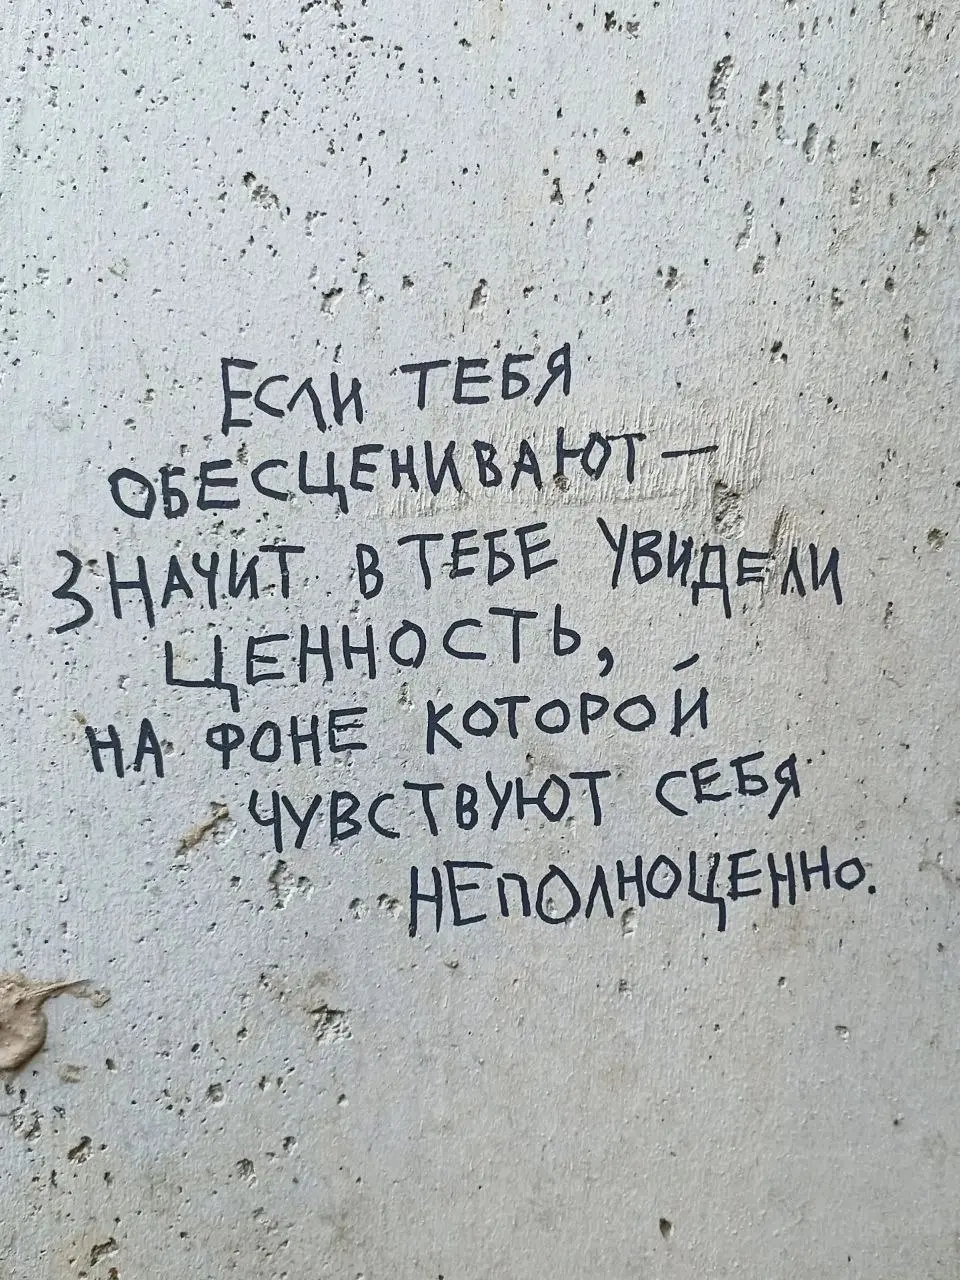 Если тебя
обесценивают —
значит в тебе увидели
ценность,
на фоне которой
чувствуют себя
неполноценно.